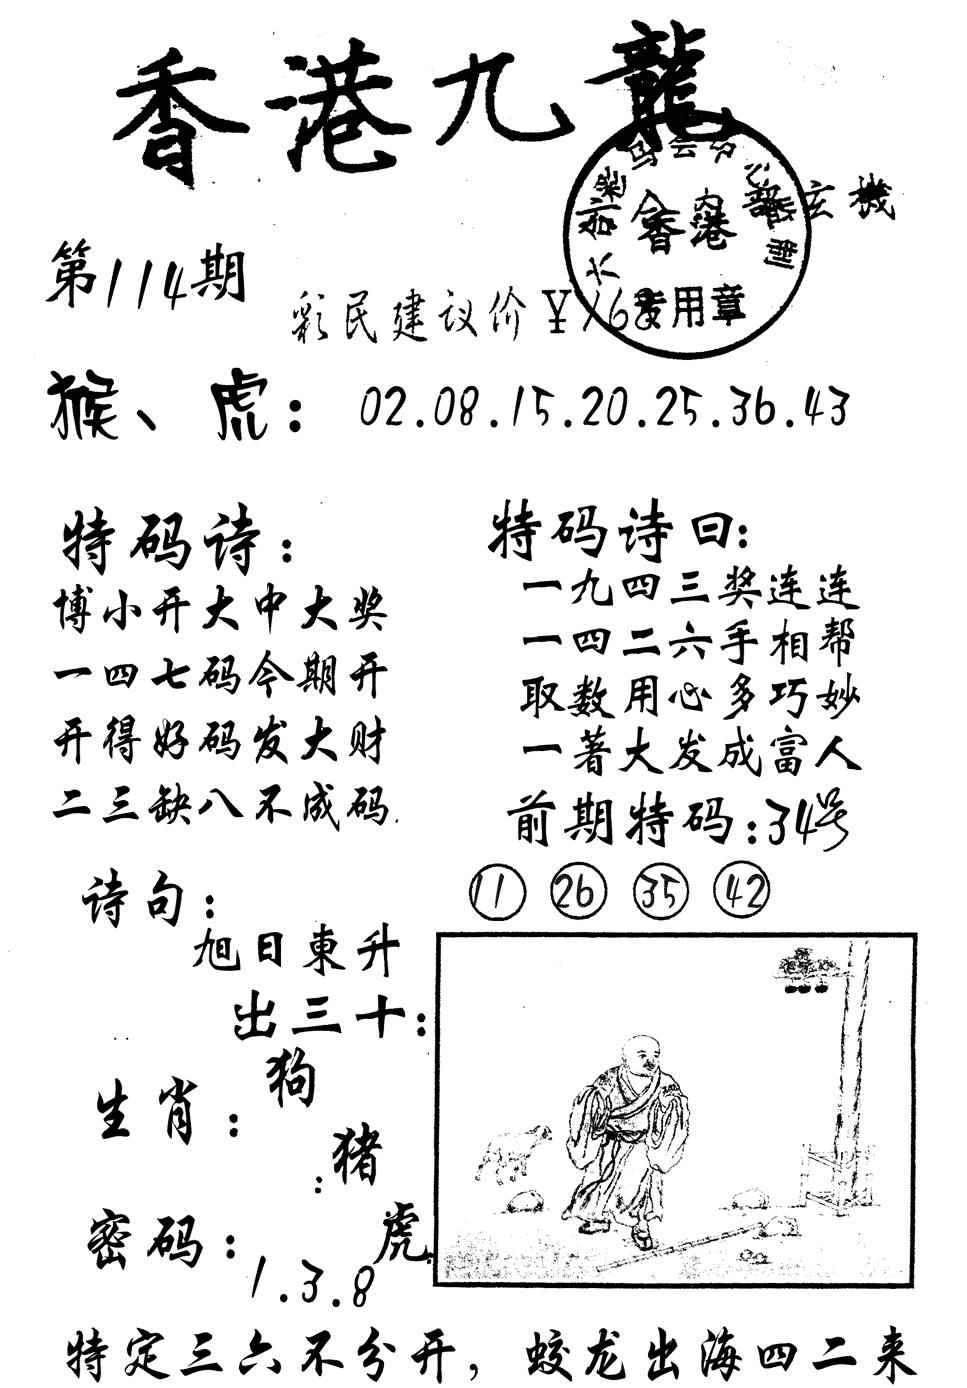 香港九龍
六合彩马会中心监制
内部玄機
香港
专用章
第114期
彩民建议价￥168
猴、虎：02.08.15.20.25.36.43
特码诗：
博小开大中大奖
一四七码今期开
开得好码发大财
二三缺八不成码
特码诗曰：
一九四三奖连连
一四二六手相帮
取数用心多巧妙
一著大发成富人
前期特码：34号
11 26 35 42
诗句：
旭日東升
出三十：
生肖：
狗
猪
虎
密码：
1.3.8
特定三六不分开，蛟龙出海四二来